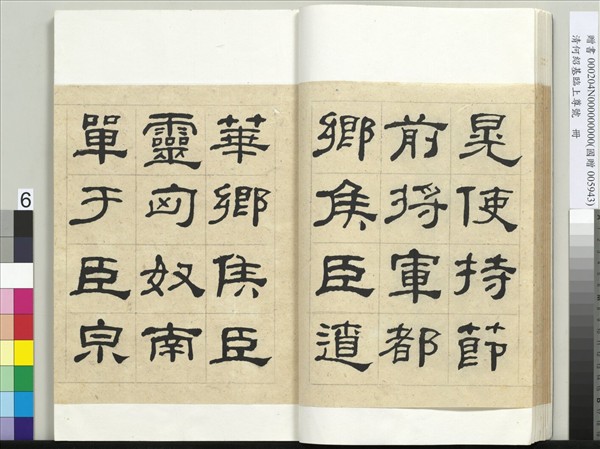 贈書 000204N000000000(國贈 005943)
清何紹基臨上尊號 冊
晃使持節
前將軍都
鄉侯臣遼
華鄉侯臣
靈匈奴南
單于臣泉
6